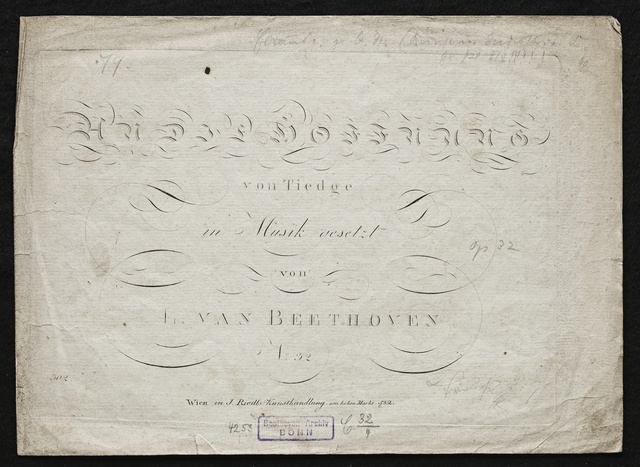 AN DIE HOFFNUNG
von Tiedge
in Musik gesetzt
von
L. VAN BEETHOVEN
Nº 32
op 32
Wien in J. Riedls Kunsthandlung am hohen Markt 582.
4253
Beethoven-Archiv
BONN
C 32/4